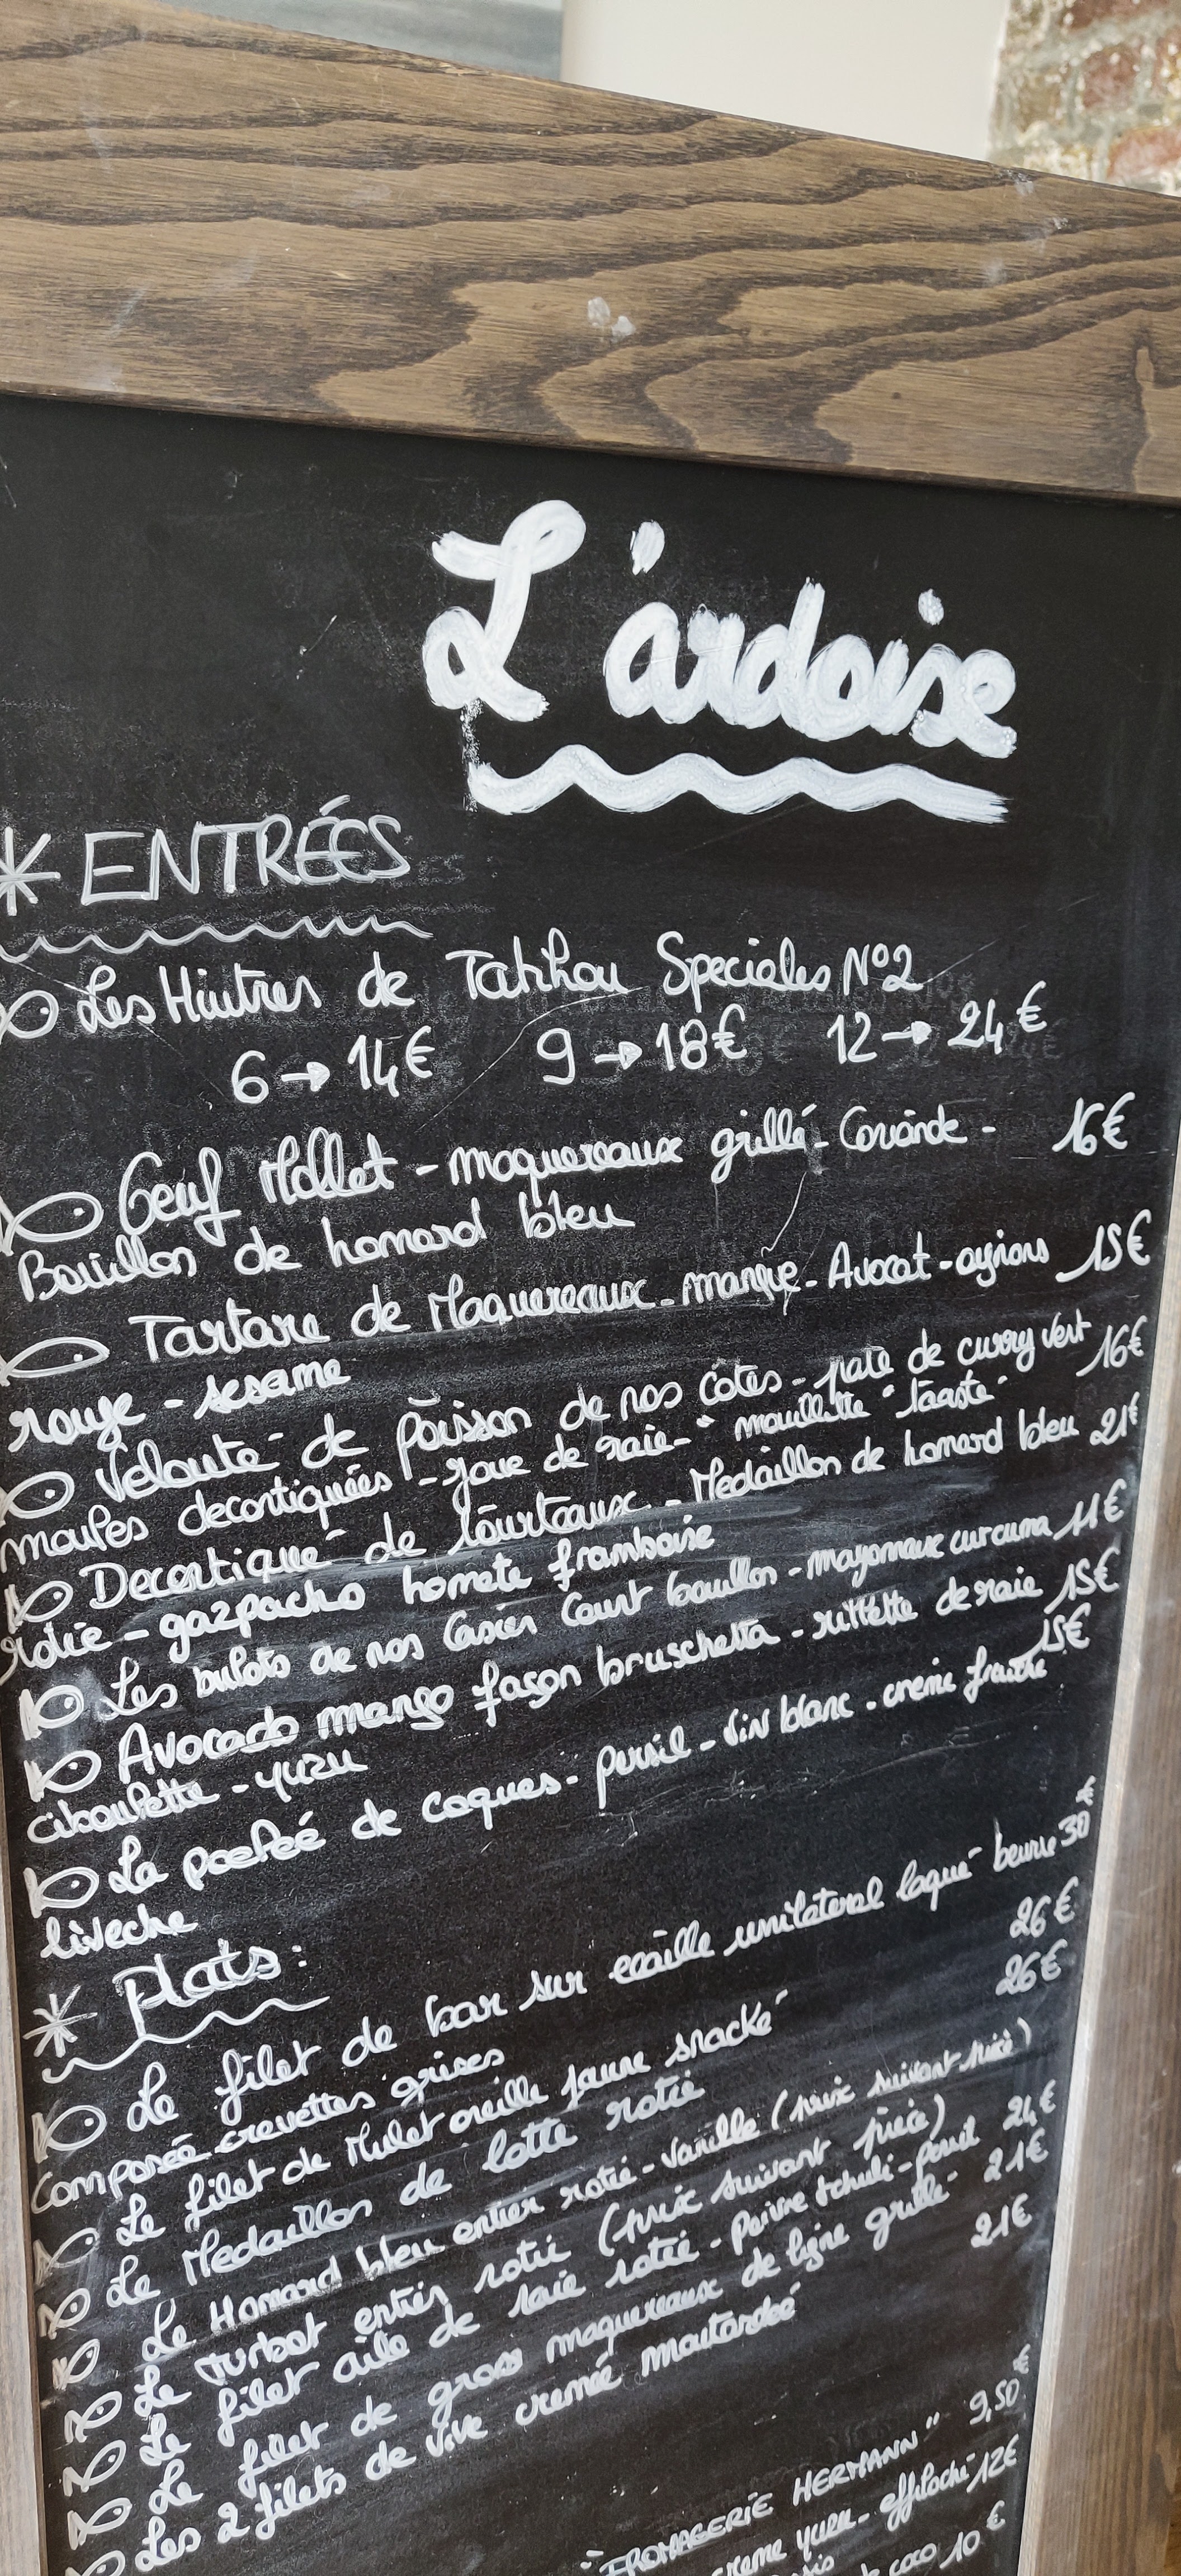 L'ardoise
* ENTRÉES
Les Huitres de Tatihou Speciales N°2
6 → 14€ 9 → 18€ 12 → 24€
Oeuf Mollet - maquereaux grillé - Coriande - 16€
Bouillon de homard bleu
Tartare de Maquereaux - mangue - Avocat - oignons 15€
rouge - sesame
Velouté de poisson de nos cotes - pate de curry vert 16€
moules decortiquées - joue de raie - "mouillette" "toasté"
Decortiqué de tourteaux - Medaillon de homard bleu 21€
rotie - gazpacho tomate framboise
Les bulots de nos Casier Court bouillon - mayonnaise curcuma 11€
Avocado mango façon bruschetta - rillette de raie 15€
ciboulette - yuzu
La poelée de coques - persil - Vin blanc - creme fraiche 15€
liveche
* Plats:
Le filet de bar sur ecaille unilateral laqué beurre 30€
Composée crevettes grises 26€
Le filet de Mulet oreille jaune snacké 26€
Le Medaillon de lotte rotie
Le Homard bleu entier rotie - Vanille (prix suivant piece)
Le Turbot entier rotie (prix suivant piece)
Le filet aile de raie rotie - poivre tchuli - persil 24€
Le filet de gross maquereaux de ligne grillé 21€
Les 2 filets de vive cremée moutardée 21€
"FROMAGERIE HERMANN" 9,50€
creme yuzu - effiloché 12€
coco 10€